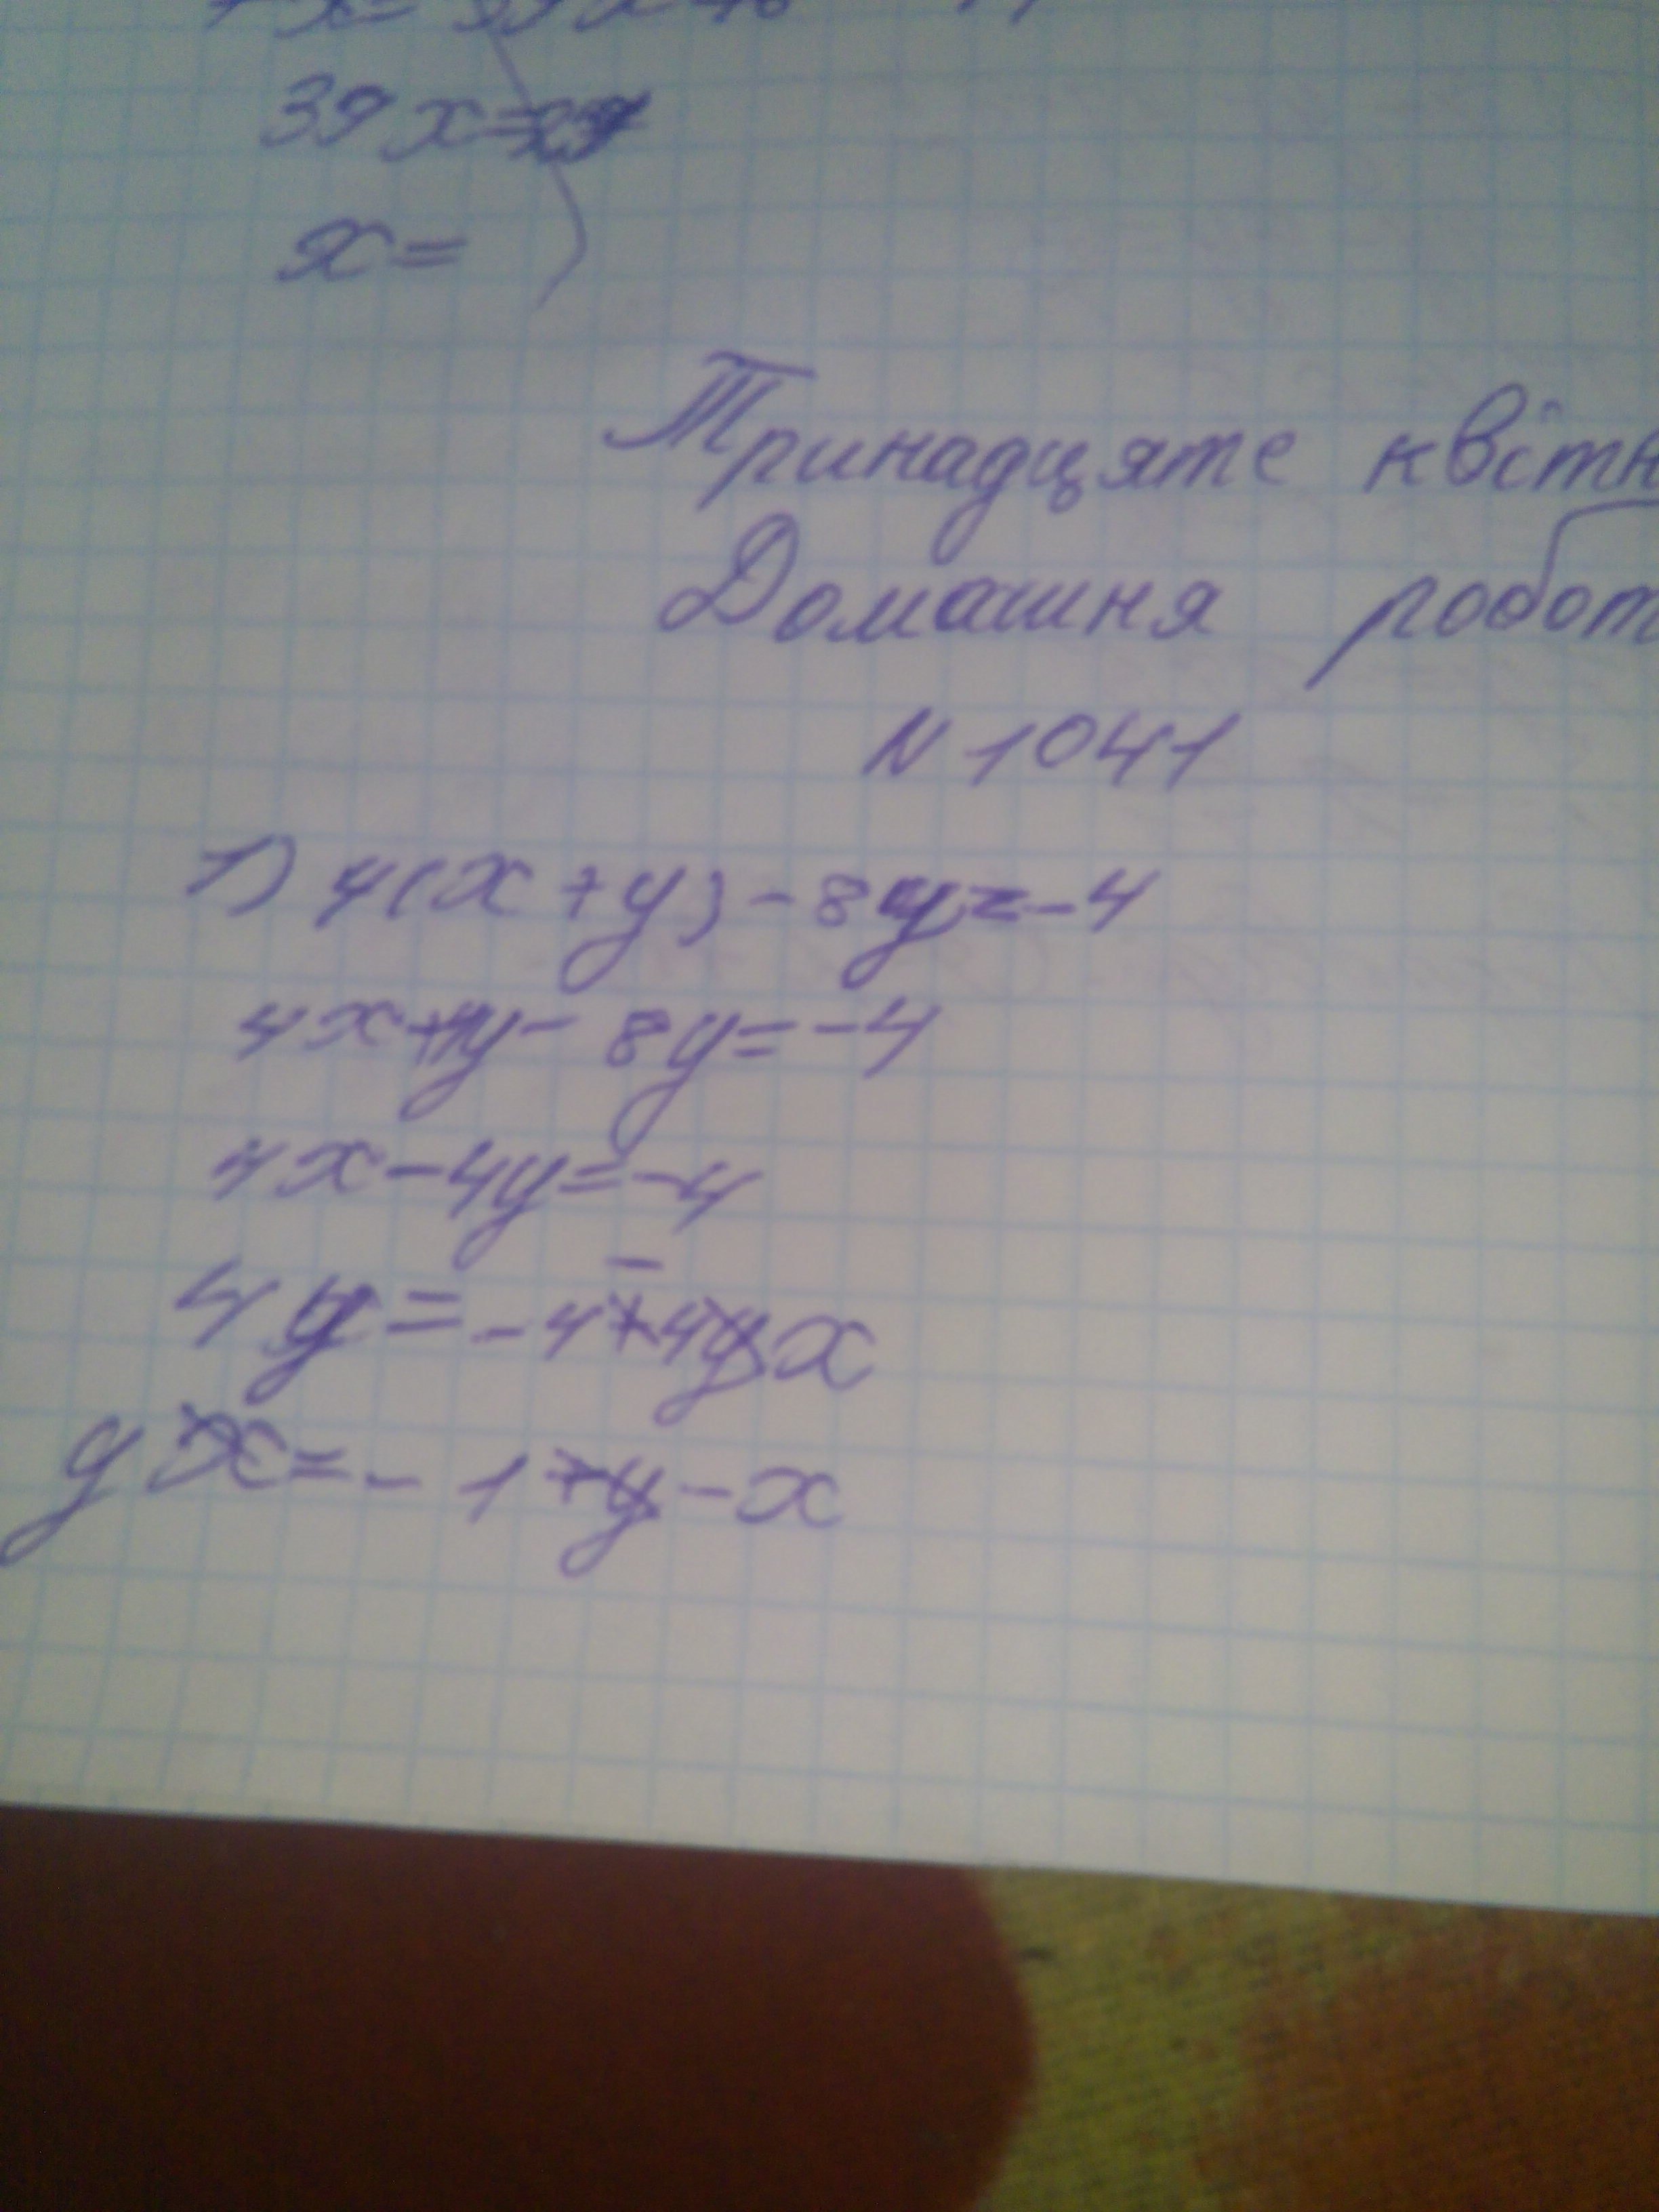 39x=
x=
Тринадцяте квітн
Домашня робот
N 1041
1) 4(x+y)-8y=-4
4x+4y-8y=-4
4x-4y=-4
4y=-4-4x
y=-1-x